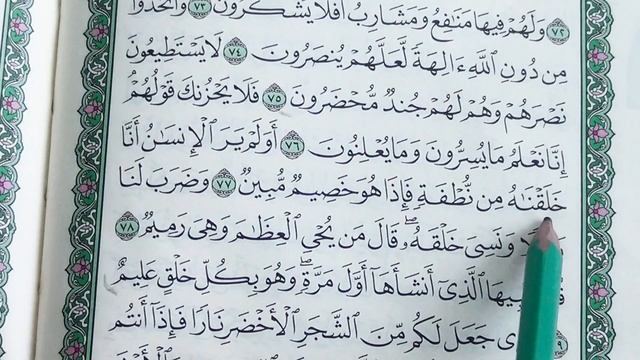 ٧٢ وَلَهُمْ فِيهَا مَنَٰفِعُ وَمَشَارِبُ أَفَلَا يَشْكُرُونَ ٧٣ وَٱتَّخَذُوا۟
مِن دُونِ ٱللَّهِ ءَالِهَةً لَّعَلَّهُمْ يُنصَرُونَ ٧٤ لَا يَسْتَطِيعُونَ
نَصْرَهُمْ وَهُمْ لَهُمْ جُندٌ مُّحْضَرُونَ ٧٥ فَلَا يَحْزُنكَ قَوْلُهُمْ
إِنَّا نَعْلَمُ مَا يُسِرُّونَ وَمَا يُعْلِنُونَ ٧٦ أَوَلَمْ يَرَ ٱلْإِنسَٰنُ أَنَّا
خَلَقْنَٰهُ مِن نُّطْفَةٍ فَإِذَا هُوَ خَصِيمٌ مُّبِينٌ ٧٧ وَضَرَبَ لَنَا
وَنَسِىَ خَلْقَهُۥ ۖ قَالَ مَن يُحْىِ ٱلْعِظَٰمَ وَهِىَ رَمِيمٌ ٧٨
ٱلَّذِىٓ أَنشَأَهَآ أَوَّلَ مَرَّةٍ ۖ وَهُوَ بِكُلِّ خَلْقٍ عَلِيمٌ
جَعَلَ لَكُم مِّنَ ٱلشَّجَرِ ٱلْأَخْضَرِ نَارًا فَإِذَآ أَنتُم